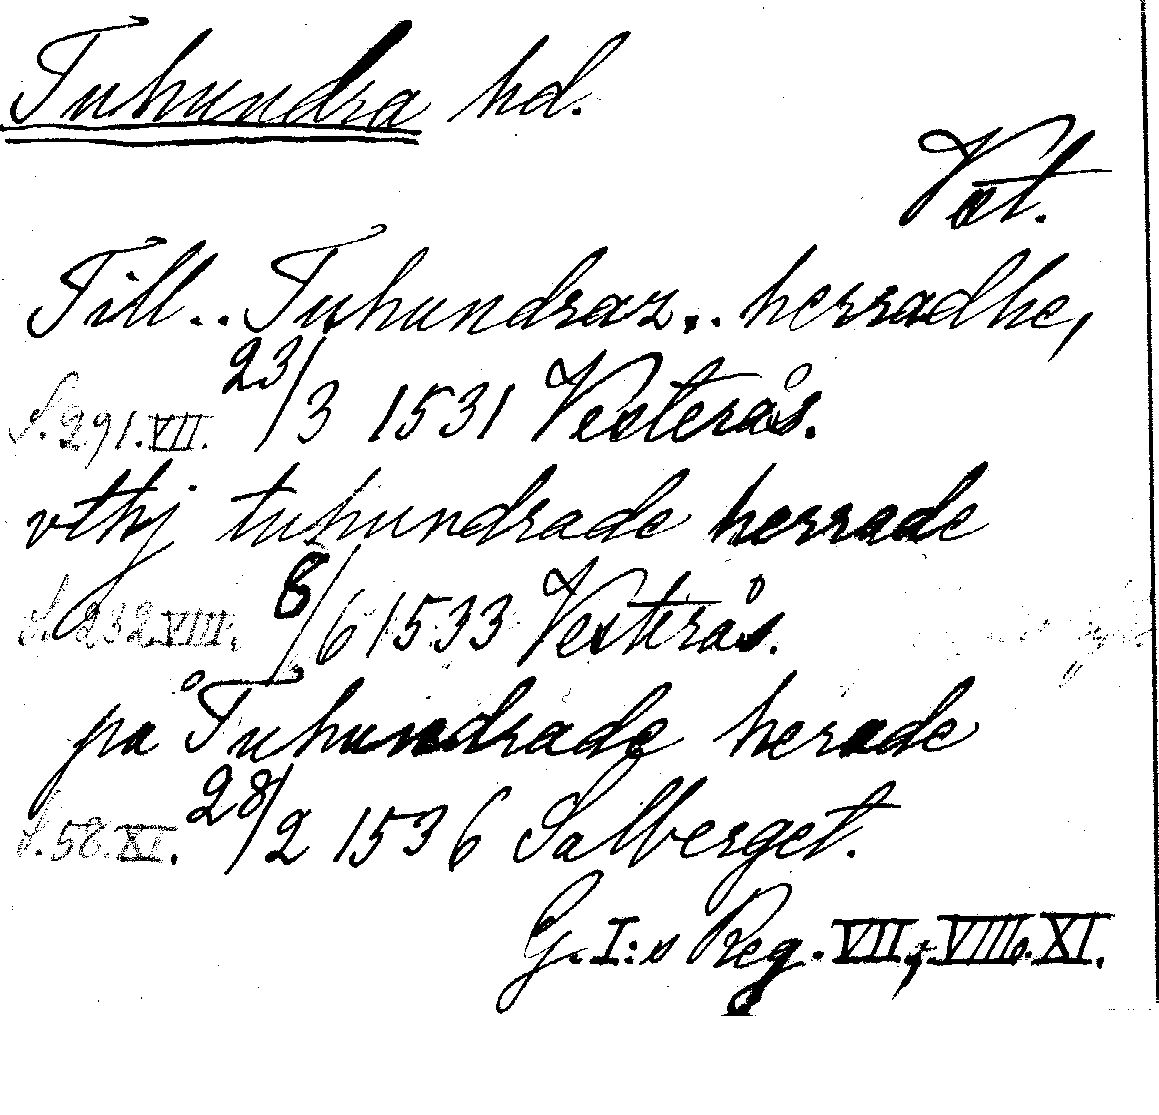 Tuhundra hd.
Vst.
Till.. Tuhundraz.. herradhe,
S. 291. VII. 23/3 1531 Vesterås.
vthj tuhundrade herrade
S. 232. VIII. 8/6 1533 Vesterås.
på Tuhundrade herade
S. 58. XI. 28/2 1536 Salberget.
G. I:s Reg. VII, VIII o. XI.